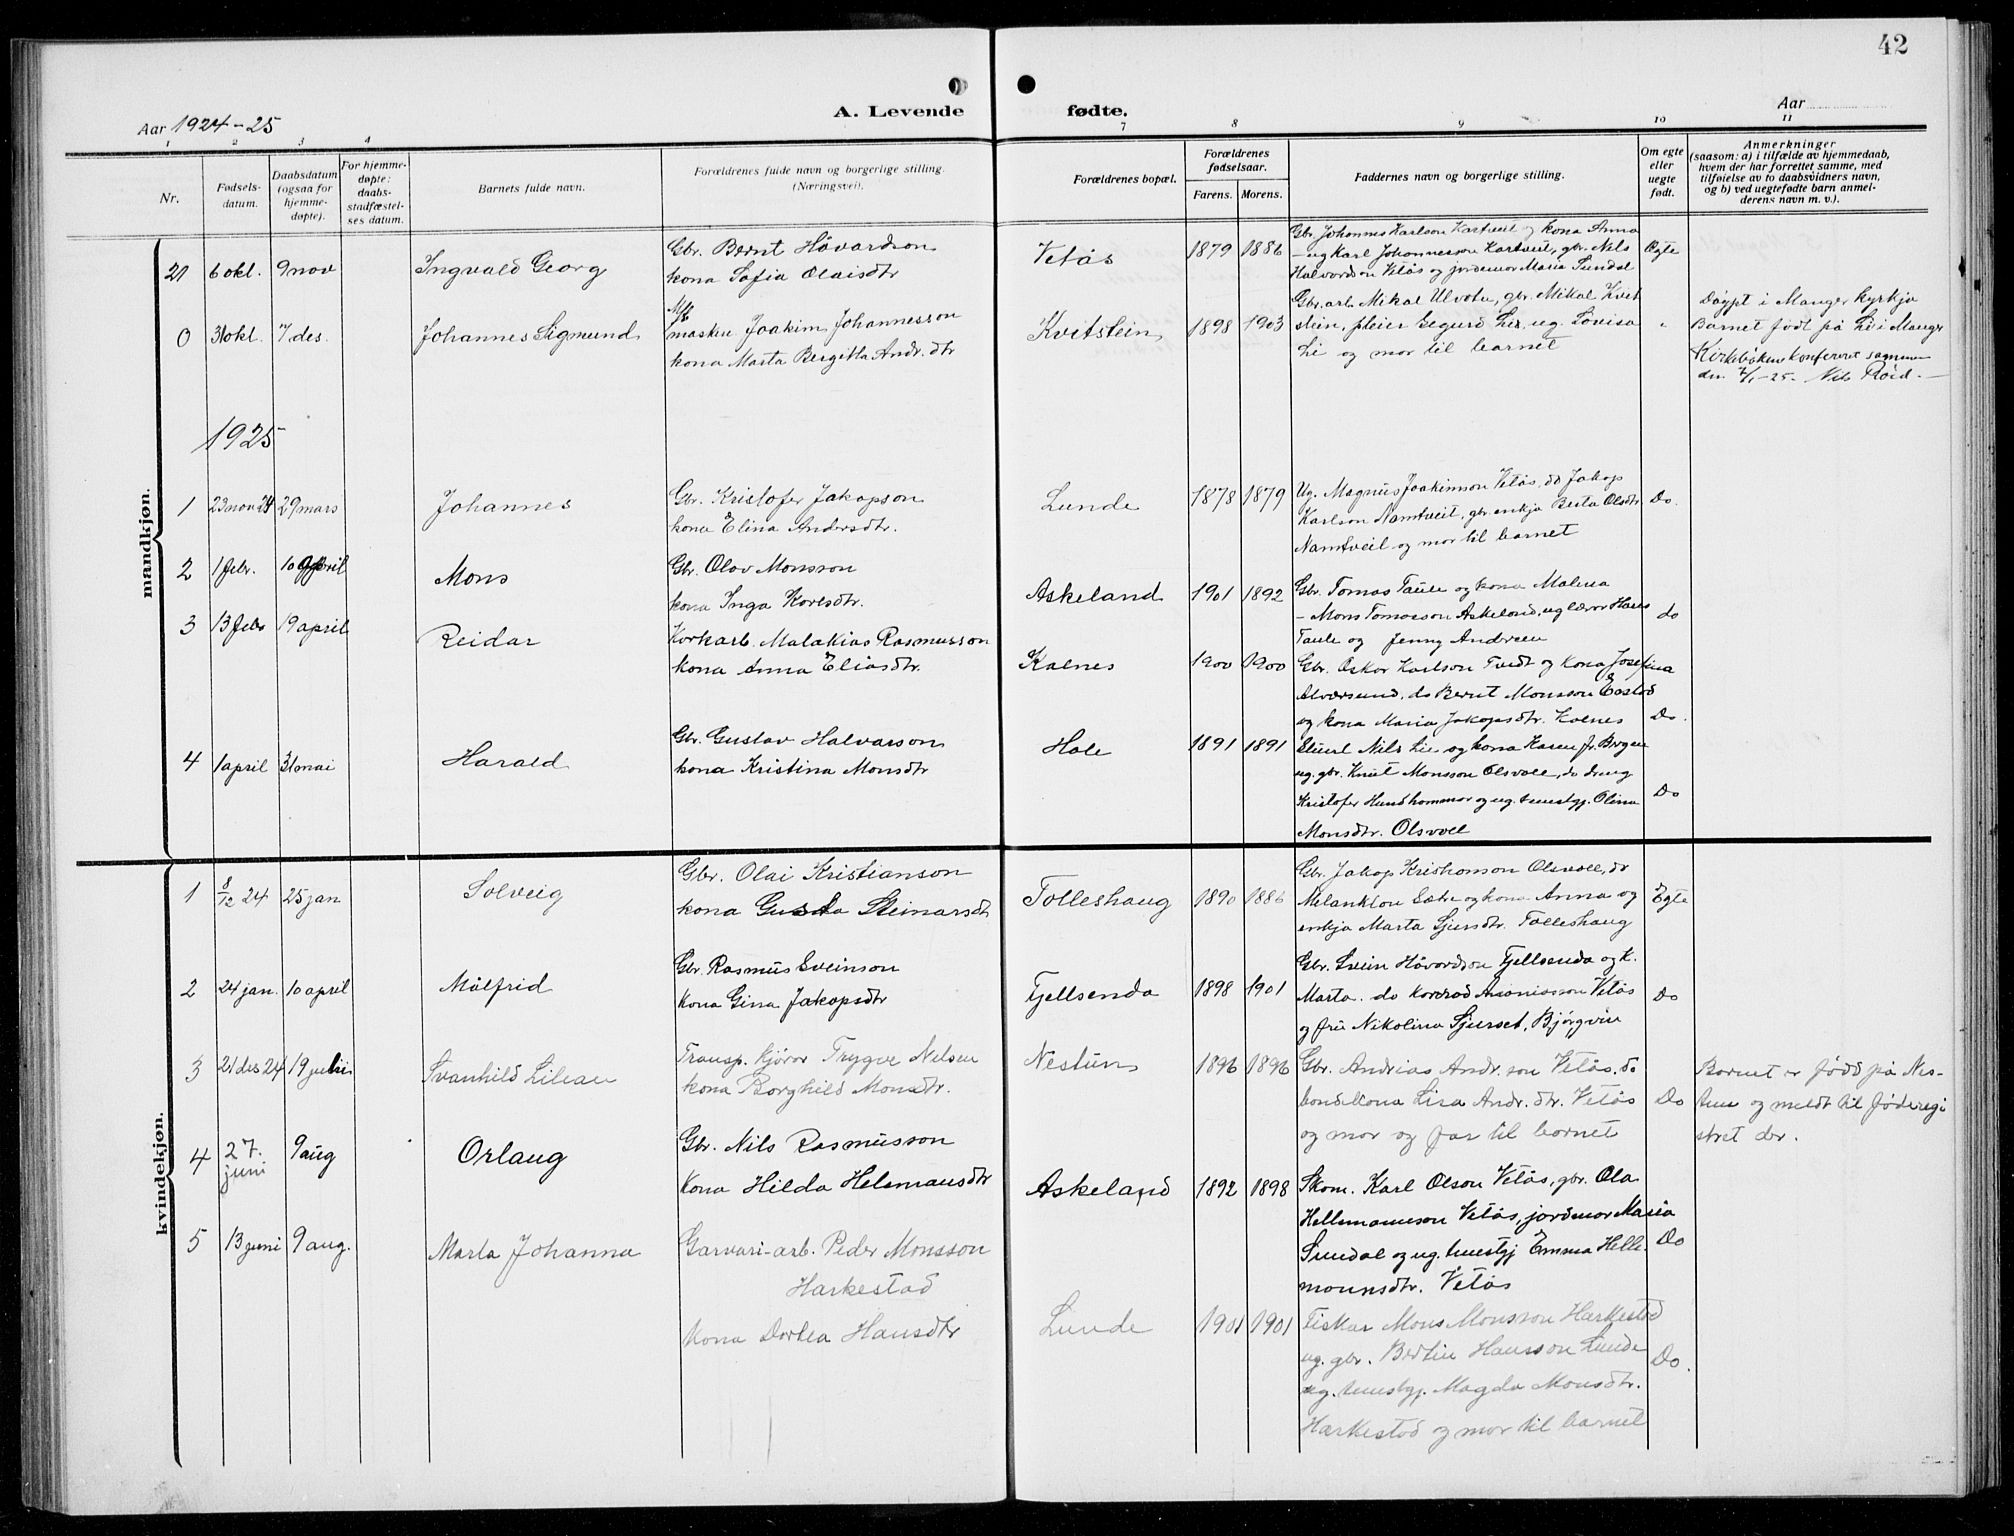 42
Aar 1924-25
A. Levende fødte.
Aar
1 2 3 4 7 8 9 10 11
Nr.
Fødsels-
datum.
Daabsdatum
(ogsaa for
hjemme-
døpte).
For hjemme-
døpte:
daabs-
stadfæstel-
ses datum.
Barnets fulde navn.
Forældrenes fulde navn og borgerlige stilling.
(Næringsvei).
Forældrenes bopæl.
Forældrenes
fødselsaar.
Farens. Morens.
Faddernes navn og borgerlige stilling.
Om egte
eller
uegte
født.
Anmerkninger
(saasom: a) i tilfælde av hjemmedaab,
hvem der har forrettet samme, med
tilføielse av to daabsvidners navn,
og b) ved uegtefødte barn anmel-
derens navn m. v.).
mandkjøn.
21 6 okt. 9 nov Ingvald Georg
Gbr. Bernt Håvardson
kona Sofia Olaisdtr
Vetås 1879 1886
Gbr. Johannes Karlson Kartveit og kona Anna
- ug Karl Johannesson Kartveit, gbr. Nils
Halvardson Vetås og jordemor Maria Sundal
Egte
0 31 okt. 7 des. Johannes Sigmund
maskin Joakim Johannesson
kona Marta Bergitta Andr. dtr
Kvitstein 1898 1903
Gbr. arb. Mikal Ulvotn, gbr. Mikal Kvit
stein, pleier Segurd Lie, ug. Lovisa
Li og mor til barnet
"
Døypt i Manger kyrkja
Barnet født på Li i Manger
Kirkebøkene konferert sammen
den 2/1-25. Nils Røed.
1925
1 23 nov 24 29 mars Johannes
Gbr. Kristofer Jakopson
kona Elina Andersdtr.
Lunde 1878 1879
Ug. Magnus Joakimson Vetås, do Jakop
Karlson Namtveit, gbr. enkja Berta Olsdtr.
Namtveit og mor til barnet
Do.
2 1 febr. 10 april Mons
Gbr. Olav Monsson
kona Inga Korlsdtr.
Askeland 1901 1892
Gbr. Tomas Taule og kona Malena
- Mons Tomasson Askeland, ug lærer Hans
Taule og Jenny Andreen
do
3 13 febr 19 april Reidar
Korkarb. Malakias Rasmusson
kona Anna Eliasdtr.
Kalnes 1900 1900
Gbr. Oskar Karlson Tvedt og kona Josefina
Alversund, do Bernt Monsson
og kona Maria Jakopsdtr. Kalnes
Do.
4 1 april 31 mai Harald
Gbr. Gustav Halvarson
kona Kristina Monsdtr
Hole 1891 1891
Nils Lie og kona Karen fr. Bergen
ug. gbr. Knut Monsson Olsvoll, do dreng
Kristofer Hundhammer og ug. tenestgj. Olina
Monsdtr. Olsvoll
Do
kvindekjøn.
1 8/12 24 25 jan Solveig
Gbr. Olai Kristianson
kona Gusta Steinarsdtr
Tolleshaug 1890 1886
Gbr. Jakop Kristianson Olsvoll, do
Melankton Sætre og kona Anna og
enkja Marta Sjursdtr. Tolleshaug
Egte
2 24 jan. 10 april Målfrid
Gbr. Rasmus Sveinson
Kona Gina Jakopsdtr
Fjellsenda 1898 1901
Gbr. Svein Håvardson Fjellsenda og K.
Marta. do Konrad Ananiasson Vetås
og fru Nikolina Sjurset, Bjørgvin
Do
3 21 des 24 19 juli Svanhild Lilean
Transp. kjørar Trygve Nelsen
kona Borghild Monsdtr.
Nestun 1896 1896
Gbr. Andrias Andr. son Vetås, do
bondekona Lisa Andr. dtr. Vetås
og mor og far til barnet
Do
Barnet er født på Nes-
tun og meldt til føderegi
stret der.
4 27. juni 9 aug Orlaug
Gbr. Nils Rasmusson
Kona Hilda Helemansdtr
Askeland 1892 1898
Skom. Karl Olson Vetås, gbr. Ola
Hellemannson Vetås, jordemor Maria
Sundal og ug. tenestgj Emma Helle-
mannsdtr. Vetås
Do
5 13 juni 9 aug. Marta Johanna
Garvari-arb. Peder Monsson
Harkestad
Kona Dortea Hansdtr
Lunde 1901 1901
Fiskar Mons Monsson Harkestad
ug. gbr. Bertin Hansson Lunde
ug. tenestgj. Magda Monsdtr.
Harkestad og mor til barnet
Do.